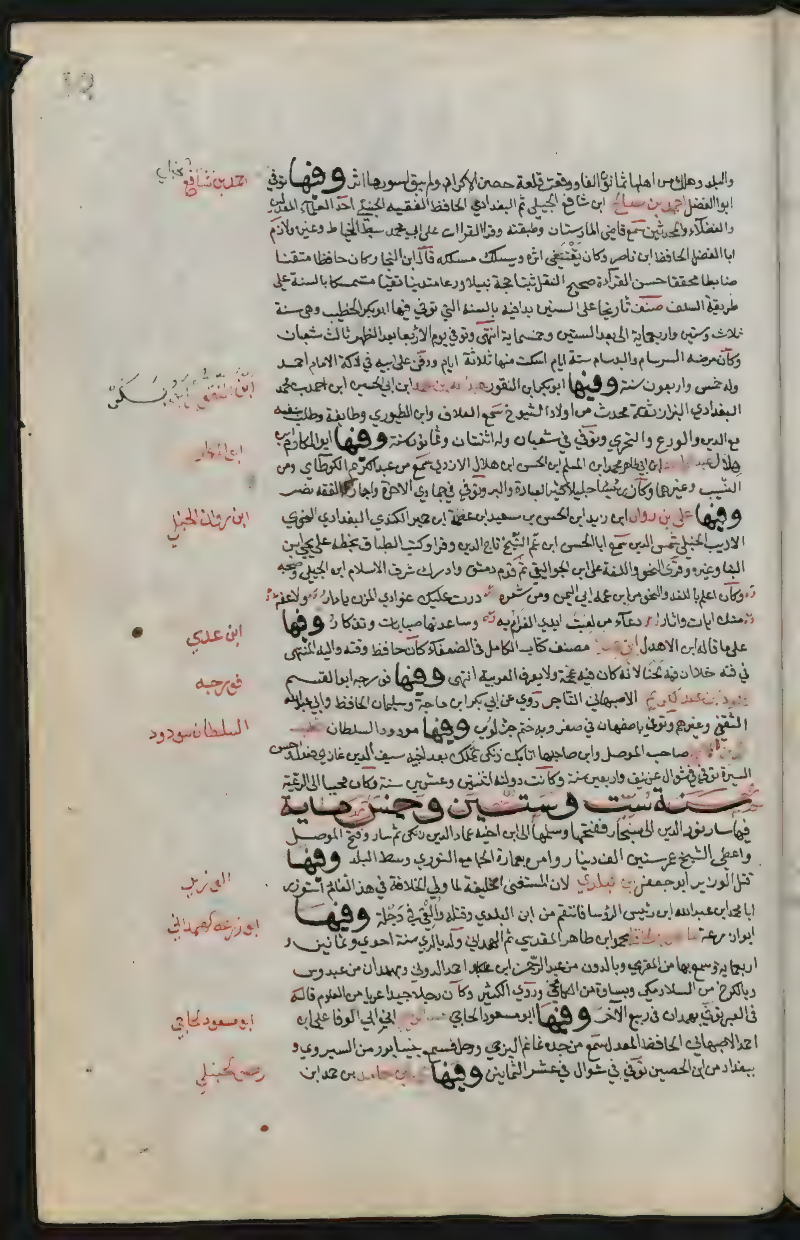 والبلد وهلك من اهلها ثمانون الفا ووقعت قلعة حصن الاكراد ولم يبق لسورها اثر وفيها توفي
ابو الفضل احمد بن صالح ابن شافع الجيلي ثم البغدادي الحافظ الفقيه الحنبلي احد العلماء المعدلين
والفضلاء والمحدثين سمع قاضي المارستان وطبقته وقرا القراات على ابي محمد سبط الخياط وغيره ولازم
ابا الفضل الحافظ ابن ناصر وكان يقتفي اثره ويسلك مسلكه قال ابن النجار كان حافظا متقنا
ضابطا محققا حسن القراءة صحيح النقل ثبتا حجة نبيلا ورعا متدينا تقيا متمسكا بالسنة على
طريقة السلف صنف تاريخا على السنين بدا فيه بالسنة التي توفي فيها ابو بكر الخطيب وهي سنة
ثلاث وستين واربعماية الى بعد الستين وخمسماية انتهى وتوفي يوم الاربعا بعد الظهر ثالث شعبان
وكان مرضه السرسام والبرسام ستة ايام اسكت منها ثلاثة ايام ودفن على ابيه في دكة الامام احمد
وله خمس واربعون سنة وفيها ابو بكر ابن النقور عبد الله بن محمد ابن ابي الحسين ابن احمد بن محمد
البغدادي البزاز ثقة محدث من اولاد الشيوخ سمع العلاف وابن الطيوري وطايفة وطلب بنفسه
مع الدين والورع والتحري وتوفي في شعبان وله اثنتان وثمانون سنة وفيها ابو المكارم ابن
هلال عبد ابن ابي طاهر محمد ابن المسلم ابن الحسن ابن هلال الازدي سمع من عبد الكريم الكفرطابي ومن
النسيب وغيرهما وكان رئيسا جليلا كثير العبادة والبر وتوفي في جمادي الاخرة واجاز له الفقه نصر
وفيها علي بن بردوان ابن زيد ابن الحسن بن سعيد ابن عصمة ابن حمير الكندي البغدادي النحوي
الاديب الحنبلي شمس الدين سمع ابا الحسن ابن عم الشيخ تاج الدين وقرا وكتب الطباق بخطه على يحيى ابن
البنا وغيره وقرى النحو واللغة على ابن الجواليقي ثم قدم دمشق وادرك شرف الاسلام ابن الجيلي وصحبه
وكان اعلم باللغة والنحو من ابن عمه ابي اليمن ومن شعره درت عليك غوادي المزن يا دار ولا عفت
منك ايات واثار دعاء من لعبت ايدي الغرام به وساعدتها صبابات وتذكار وفيها
على ما قاله ابن الاهدل ابن عدي مصنف كتاب الكامل في الضعفاء كان حافظ وقته واليه المنتهى
في فنه خلا ان فيه لحنا لانه كان فيه عجمة ولا يعرف العربية انتهى وفيها فورجه ابو القسم
محمود بن عبد الكريم الاصبهاني التاجر روي عن ابي بكر ابن ماجة وسليمان الحافظ وابي عبد الله
الثقفي وغيرهم وتوفي باصفهان في صفر وبه ختم جزء لوين وفيها مودود السلطان قطب
الدين صاحب الموصل وابن صاحبها اتابك زنكي تملك بعد اخيه سيف الدين غازي فعدل واحسن
السيرة توفي في شوال عن نيف واربعين سنة وكانت دولته اثنتين وعشرين سنة وكان محببا الى الرعية
سنة ست وستين وخمس ماية
فيها سار نور الدين الى سنجار ففتحها وسلمها الى ابن اخيه عماد الدين زنكي ثم سار وفتح الموصل
واعطى الشيخ عمر ستين الف دينار وامره بعمارة الجامع النوري وسط البلد وفيها
قتل الوزير ابو جعفر بن البلدي لان المستضي الخليفة لما ولي الخلافة في هذا العام استوزر
ابا محمد ابن عبد الله ابن رئيس الرؤسا فانتقم من ابن البلدي وقتله والقي في دجلة وفيها
ابو زرعة طاهر بن الحافظ محمد ابن طاهر المقدسي ثم الهمداني ولد بالري سنة احدي وثمانين و
اربعماية وسمع بها من المقومي وبالدون من عبد الرحمن ابن احمد الدوني وبهمدان من عبدوس
وبالكرخ من السلار مكي وبساوة من الكامخي وروي الكثير وكان رجلا جيدا عريا من العلوم قاله
في العبر توفي بهمدان في ربيع الاخر وفيها ابو مسعود الحاجي عبد الرحيم ابن ابي الوفا علي ابن
احمد الاصبهاني الحافظ المعدل سمع من جده غانم البرجي ورحل فسمع بنيسابور من الشيروي و
ببغداد من ابن الحصين توفي في شوال في عشر الثمانين وفيها بن حامد بن حمد ابن
احمد بن شافع
ابن عدي
فورجه
السلطان مودود
ابو زرعة الهمداني
ابو مسعود الحاجي